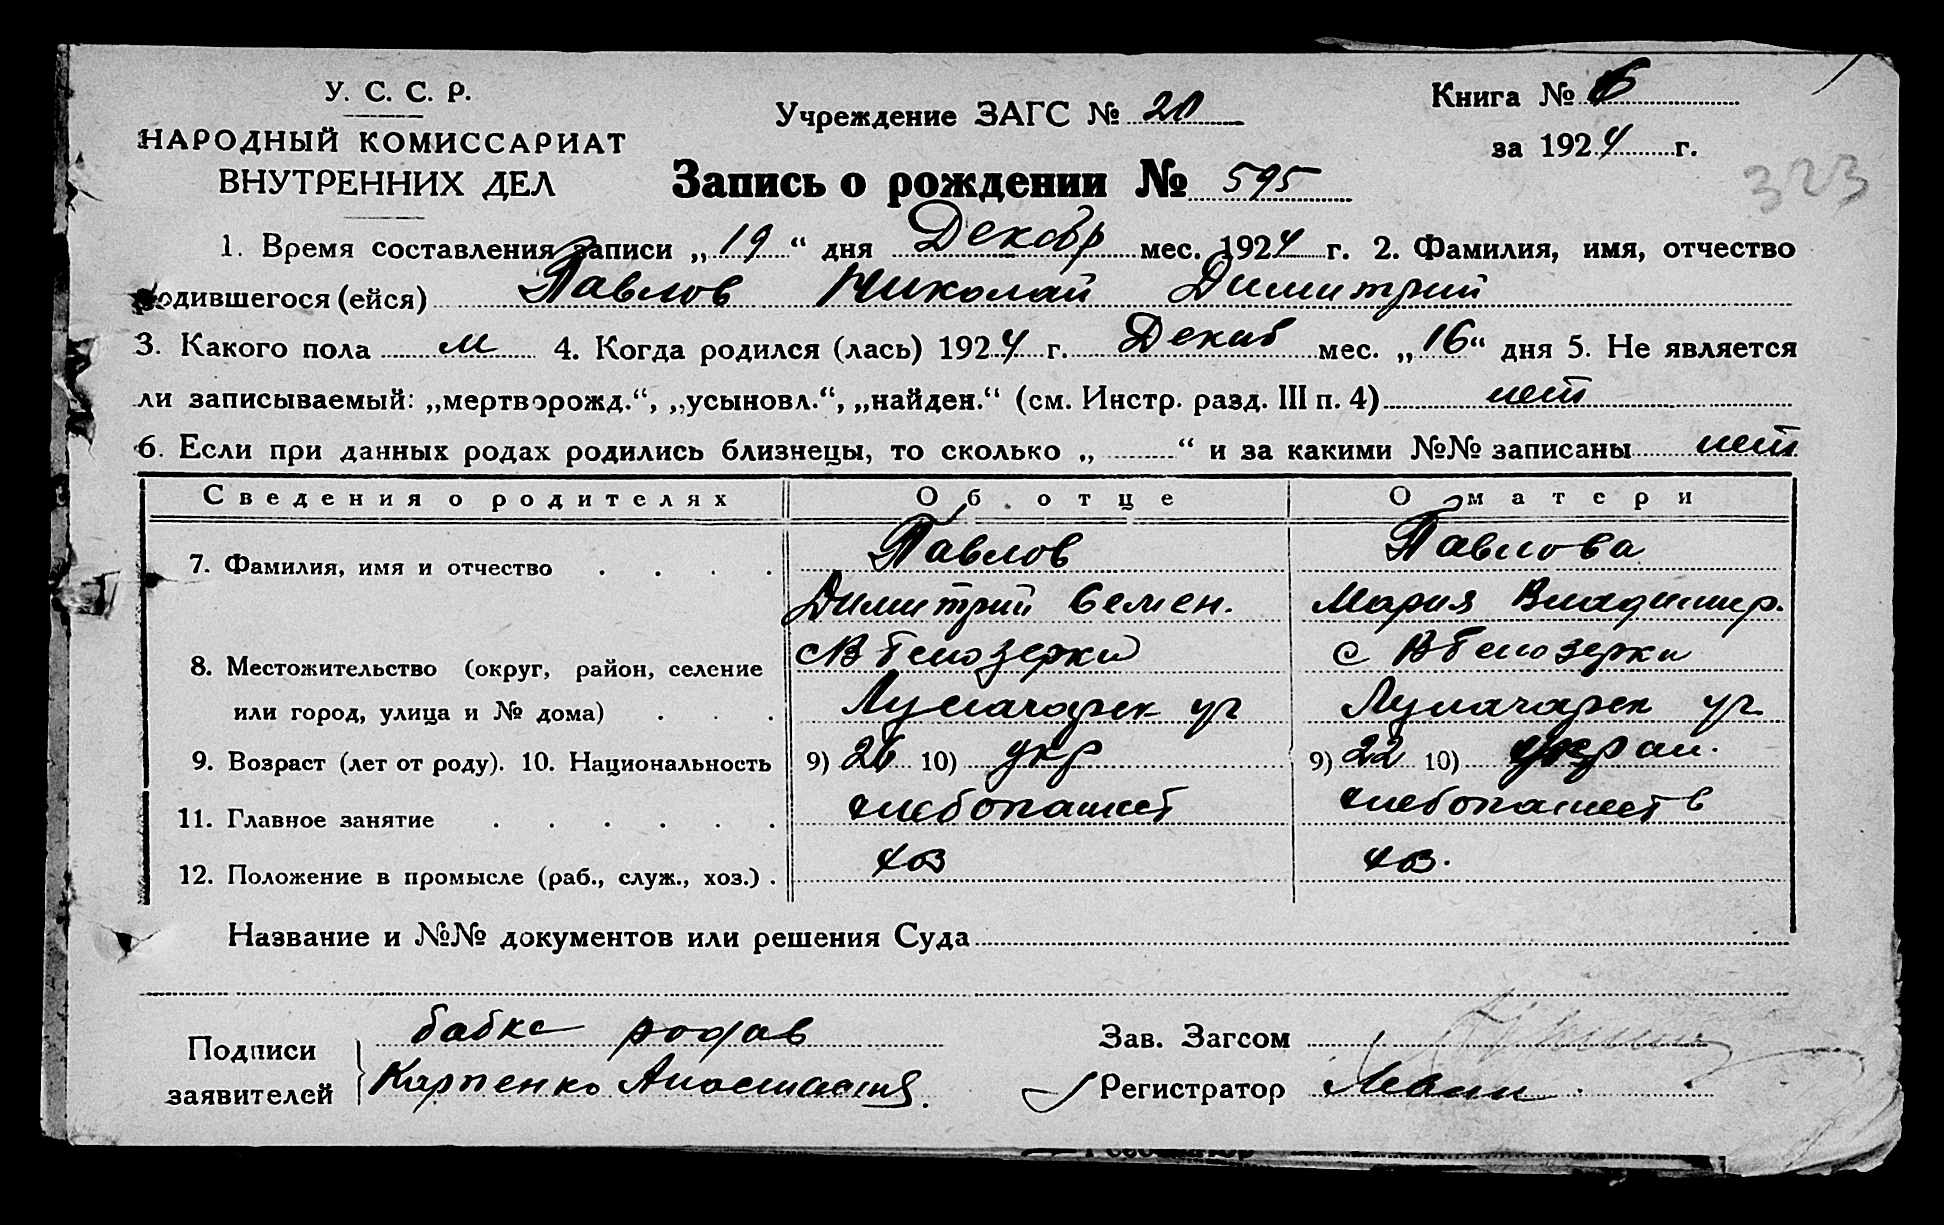 У. С. С. Р.
НАРОДНЫЙ КОМИССАРИАТ
ВНУТРЕННИХ ДЕЛ
Учреждение ЗАГС № 20
Книга № 6
за 1924 г.
Запись о рождении № 595
323
1. Время составления записи „19“ дня Декабр мес. 1924 г. 2. Фамилия, имя, отчество
родившегося (ейся) Павлов Николай Димитрий
3. Какого пола м 4. Когда родился (лась) 1924 г. Декаб мес. „16“ дня 5. Не является
ли записываемый: „мертворожд.“, „усыновл.“, „найден.“ (см. Инстр. разд. III п. 4) нет
6. Если при данных родах родились близнецы, то сколько „ “ и за какими №№ записаны нет
Сведения о родителях Об отце О матери
7. Фамилия, имя и отчество Павлов Павлова
Димитрий Семен. Мария Владимир.
8. Местожительство (округ, район, селение с В Белозерки с В Белозерки
или город, улица и № дома) Луначарск ул Луначарск ул.
9. Возраст (лет от роду). 10. Национальность 9) 26 10) укр 9) 22 10) украи.
11. Главное занятие хлебопашест хлебопашеств
12. Положение в промысле (раб., служ., хоз.) хоз хоз.
Название и №№ документов или решения Суда
Подписи заявителей
бабка родив
Карпенко Анастасия.
Зав. Загсом
Регистратор